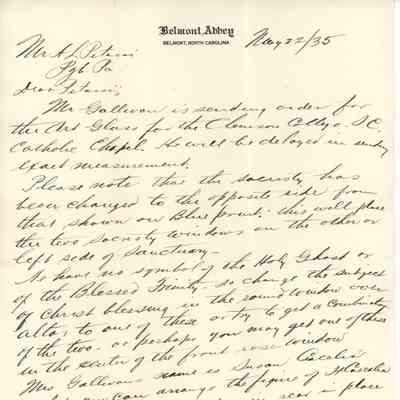 Belmont, Abbey
BELMONT, NORTH CAROLINA
May 22/35
Mr A L Pitassi
Pgh Pa
Dear Pitassi,
Mr Gallivan is sending order for
the Art Glass for the Clemson College S.C.
Catholic Chapel. He will be delayed in sending
exact measurement.
Please note that the sacristy has
been changed to the opposite side from
that shown on Blue print. this will place
the two sacristy windows on the other or
left side of Sanctuary—
We have no symbol of the Holy Ghost or
of the Blessed Trinity so change the subject
of Christ blessing in the round window over
altar to one of these or try to get a combination
of the two. or perhaps you may get one of these
in the center of the front rose window
Mrs Gallivans name is Susan Cecelia
can arrange the figure of St Cecelia
in place